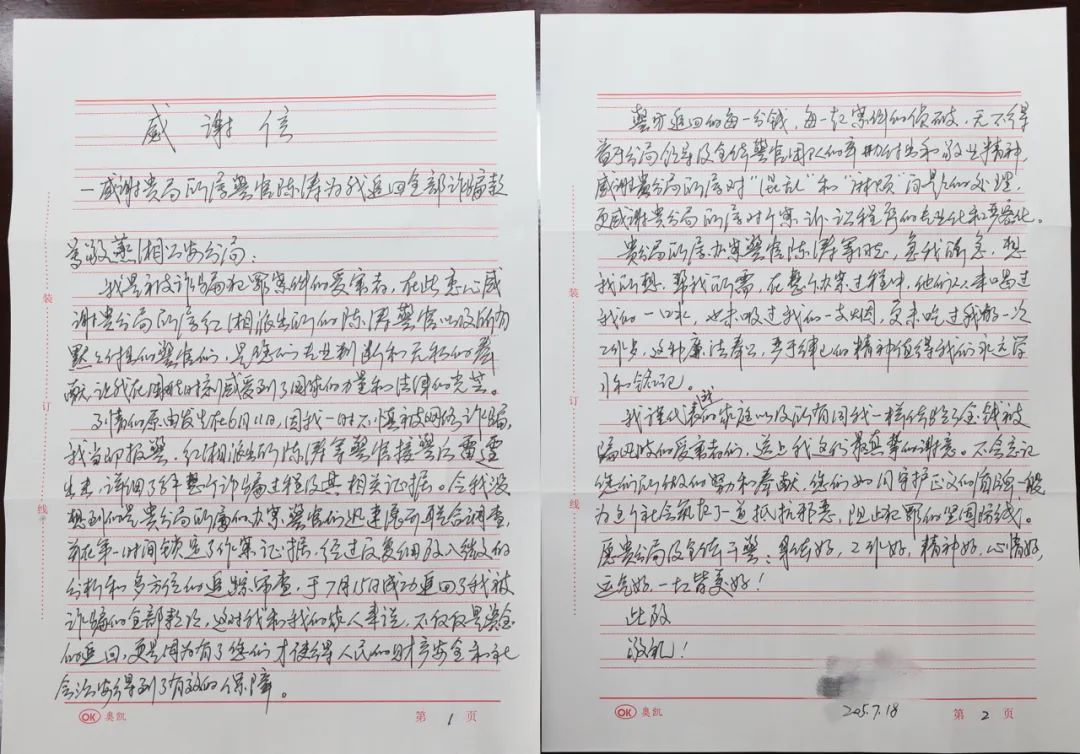 感 谢 信
—感谢贵局所属警官陈涛为我追回全部诈骗款
尊敬燕湘公安分局:
我是被诈骗犯罪案件的受害者,在此衷心感
谢贵分局所属红湘派出所的陈涛警官以及所有
默默付出的警官们,是您们专业判断和无私的奉
献,让我在困难时刻感受到了国家的力量和法律的光芒。
事情的原由发生在6月11日,因我一时不慎被网络诈骗,
我当即报警,红湘派出所陈涛等警官接警后雷霆
出击,详细了解整个诈骗过程及其相关证据。令我没
想到的是贵分局所属的办案警官们迅速展开联合调查,
并在第一时间锁定了作案证据,经过反复细致入微的
分析和多方位的追踪审查,于7月15日成功追回了我被
诈骗的全部款项,这对我和我的家人来说,不仅仅是资金
的追回,更是因为有了您们才使得人民的财产安全和社
会治安得到了有效的保障。
OK 奥凯 第 1 页
警方追回的每一分钱,每一起案件的侦破,无不得
益于分局领导及全体警官团队的辛勤付出和敬业精神,
感谢贵分局所属对“混乱”和“麻烦”问题的处理,
更感谢贵分局所属对个案诉讼程序的专业化和严密化。
贵分局所属办案警官陈涛等同志,急我所急,想
我所想,帮我所需,在整个办案过程中,他们从未喝过
我们一口水,也未吸过我们一支烟,更未吃过我们一次
工作步,这种廉洁奉公,严于律己的精神值得我们永远学
习和铭记。
我谨代表我的家庭以及所有同我一样经历了金钱被
骗风波的受害者们,送上我这份最真挚的谢意。不会忘记
您们所做的努力和奉献,您们如同守护正义的盾牌一般
为这个社会筑起了一道抵抗邪恶,阻止犯罪的坚固防线。
愿贵分局及全体干警:身体好,工作好,精神好,心情好,
运气好,一切皆美好!
此致
敬礼!
2025.7.18
OK 奥凯 第 2 页
装
订
线
装
订
线